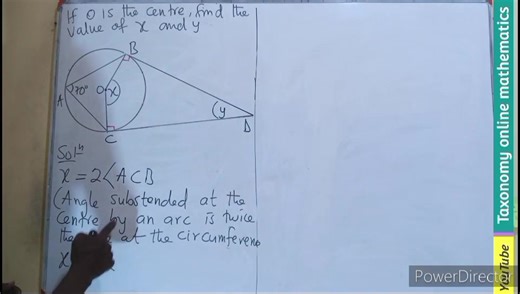 If O is the centre, find the
value of x and y
B
A
70°
O
x
y
C
D
Solⁿ
x = 2<ACB
(Angle substended at the
centre by an arc is twice
the at the circumferenc
x
Taxonomy online mathematics
YouTube
PowerDirector